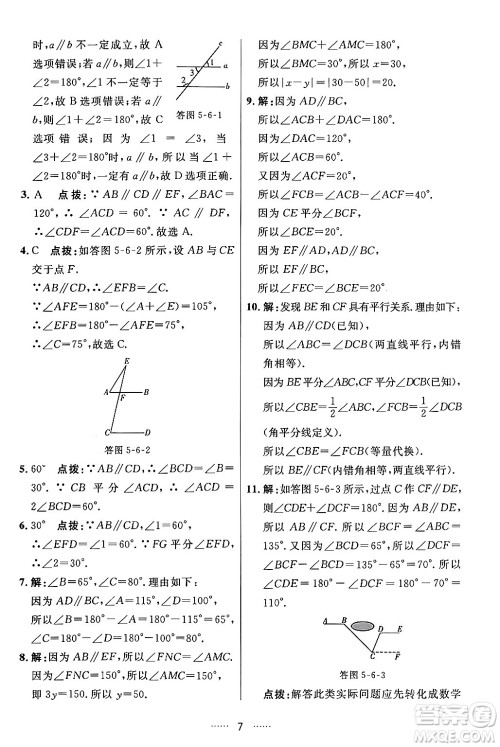 时，a∥b 不一定成立，故 A
选项错误；若 a∥b，则∠1+
∠2=180°时，a∥b 不一定
成立，故 B 选项错误；若 a∥
b，则∠1=∠2，故 C
选项错误；因为∠1+∠2=180°时，所以∠3+∠2=
180°时，一定有 a∥b，故 D 选项正确.
a
b
c
1
2
3
答图 5-6-1
3. A 点拨：∵AB∥CD∥EF，∠BAC=
120°，∴∠ACD=60°. ∵AC∥DF，
∴∠CDF=∠ACD=60°. 故选 A.
4. C 点拨：如答图 5-6-2 所示，设 AB 与 CE
交于点 F.
∵AB∥CD，∴∠AFE=∠C.
∵∠AFE=180°-(∠A+∠E)=105°，
∴∠AFE=180°-∠AFE=75°，
∴∠C=75°，故选 C.
E
A
F
B
C
D
答图 5-6-2
5. 60° 点拨：∵AB∥CD，∴∠BCD=∠B=
30°. ∵CB 平分∠ACD，∴∠ACD=
2∠BCD=60°.
6. 30° 点拨：∵AB∥CD，∠1=60°，
∴∠EFD=∠1=60°. ∵FG 平分∠EFD，
∴∠2=30°.
7. 解：∠B=65°，∠D=65°. 理由如下：
因为 AD∥BC，∠A=115°，∠C=110°，
所以∠B=180°-∠A=180°-115°=65°，
∠D=180°-∠C=180°-110°=70°.
8. 解：因为 AB∥CD，所以∠FNC=∠AMC.
因为∠FNC=150°，所以∠AMC=150°，
即 3x+y=150. 所以∠BMC=180°-
因为∠BMC+∠AMC=180°，
所以∠BMC=30°，所以 x=30.
所以|x-y|=|30-50|=20.
9. 解：因为 AD∥BC，
所以∠ACB+∠DAC=180°.
因为∠DAC=120°，
所以∠ACB=60°.
又因为∠ACF=20°，
所以∠BCF=∠ACB-∠ACF=40°.
因为 CE 平分∠BCF，
所以∠BCE=20°.
因为 EF∥AD，AD∥BC，
所以 EF∥BC.
所以∠FEC=∠BCE=20°.
10. 解：发现 BE 和 CF 具有平行关系. 理由如下：
因为 AB∥CD(已知)，
所以∠ABC=∠DCB(两直线平行，内错
角相等).
因为 BE 平分∠ABC，CF 平分∠DCB，
所以∠CBE=1/2∠ABC，∠BCF=1/2∠DCB
(角平分线定义).
所以∠CBE=∠BCF(等量代换).
所以 BE∥CF(内错角相等，两直线平行).
11. 解：如答图 5-6-3，过点 C 作 CF∥AB，
则∠BCF=180°-∠ABC=180°-135°=
45°. 所以∠DCF=∠BCD-∠BCF=
65°-45°=20°. 因为 AB∥DE，AB∥CF，
所以 CF∥DE. 所以∠CDE+∠DCF=180°. 所以
∠CDE=180°-∠DCF=180°-20°=
160°.
A
B
C
D
E
F
答图 5-6-3
点拨：解答此类实际问题应先转化成数学
7